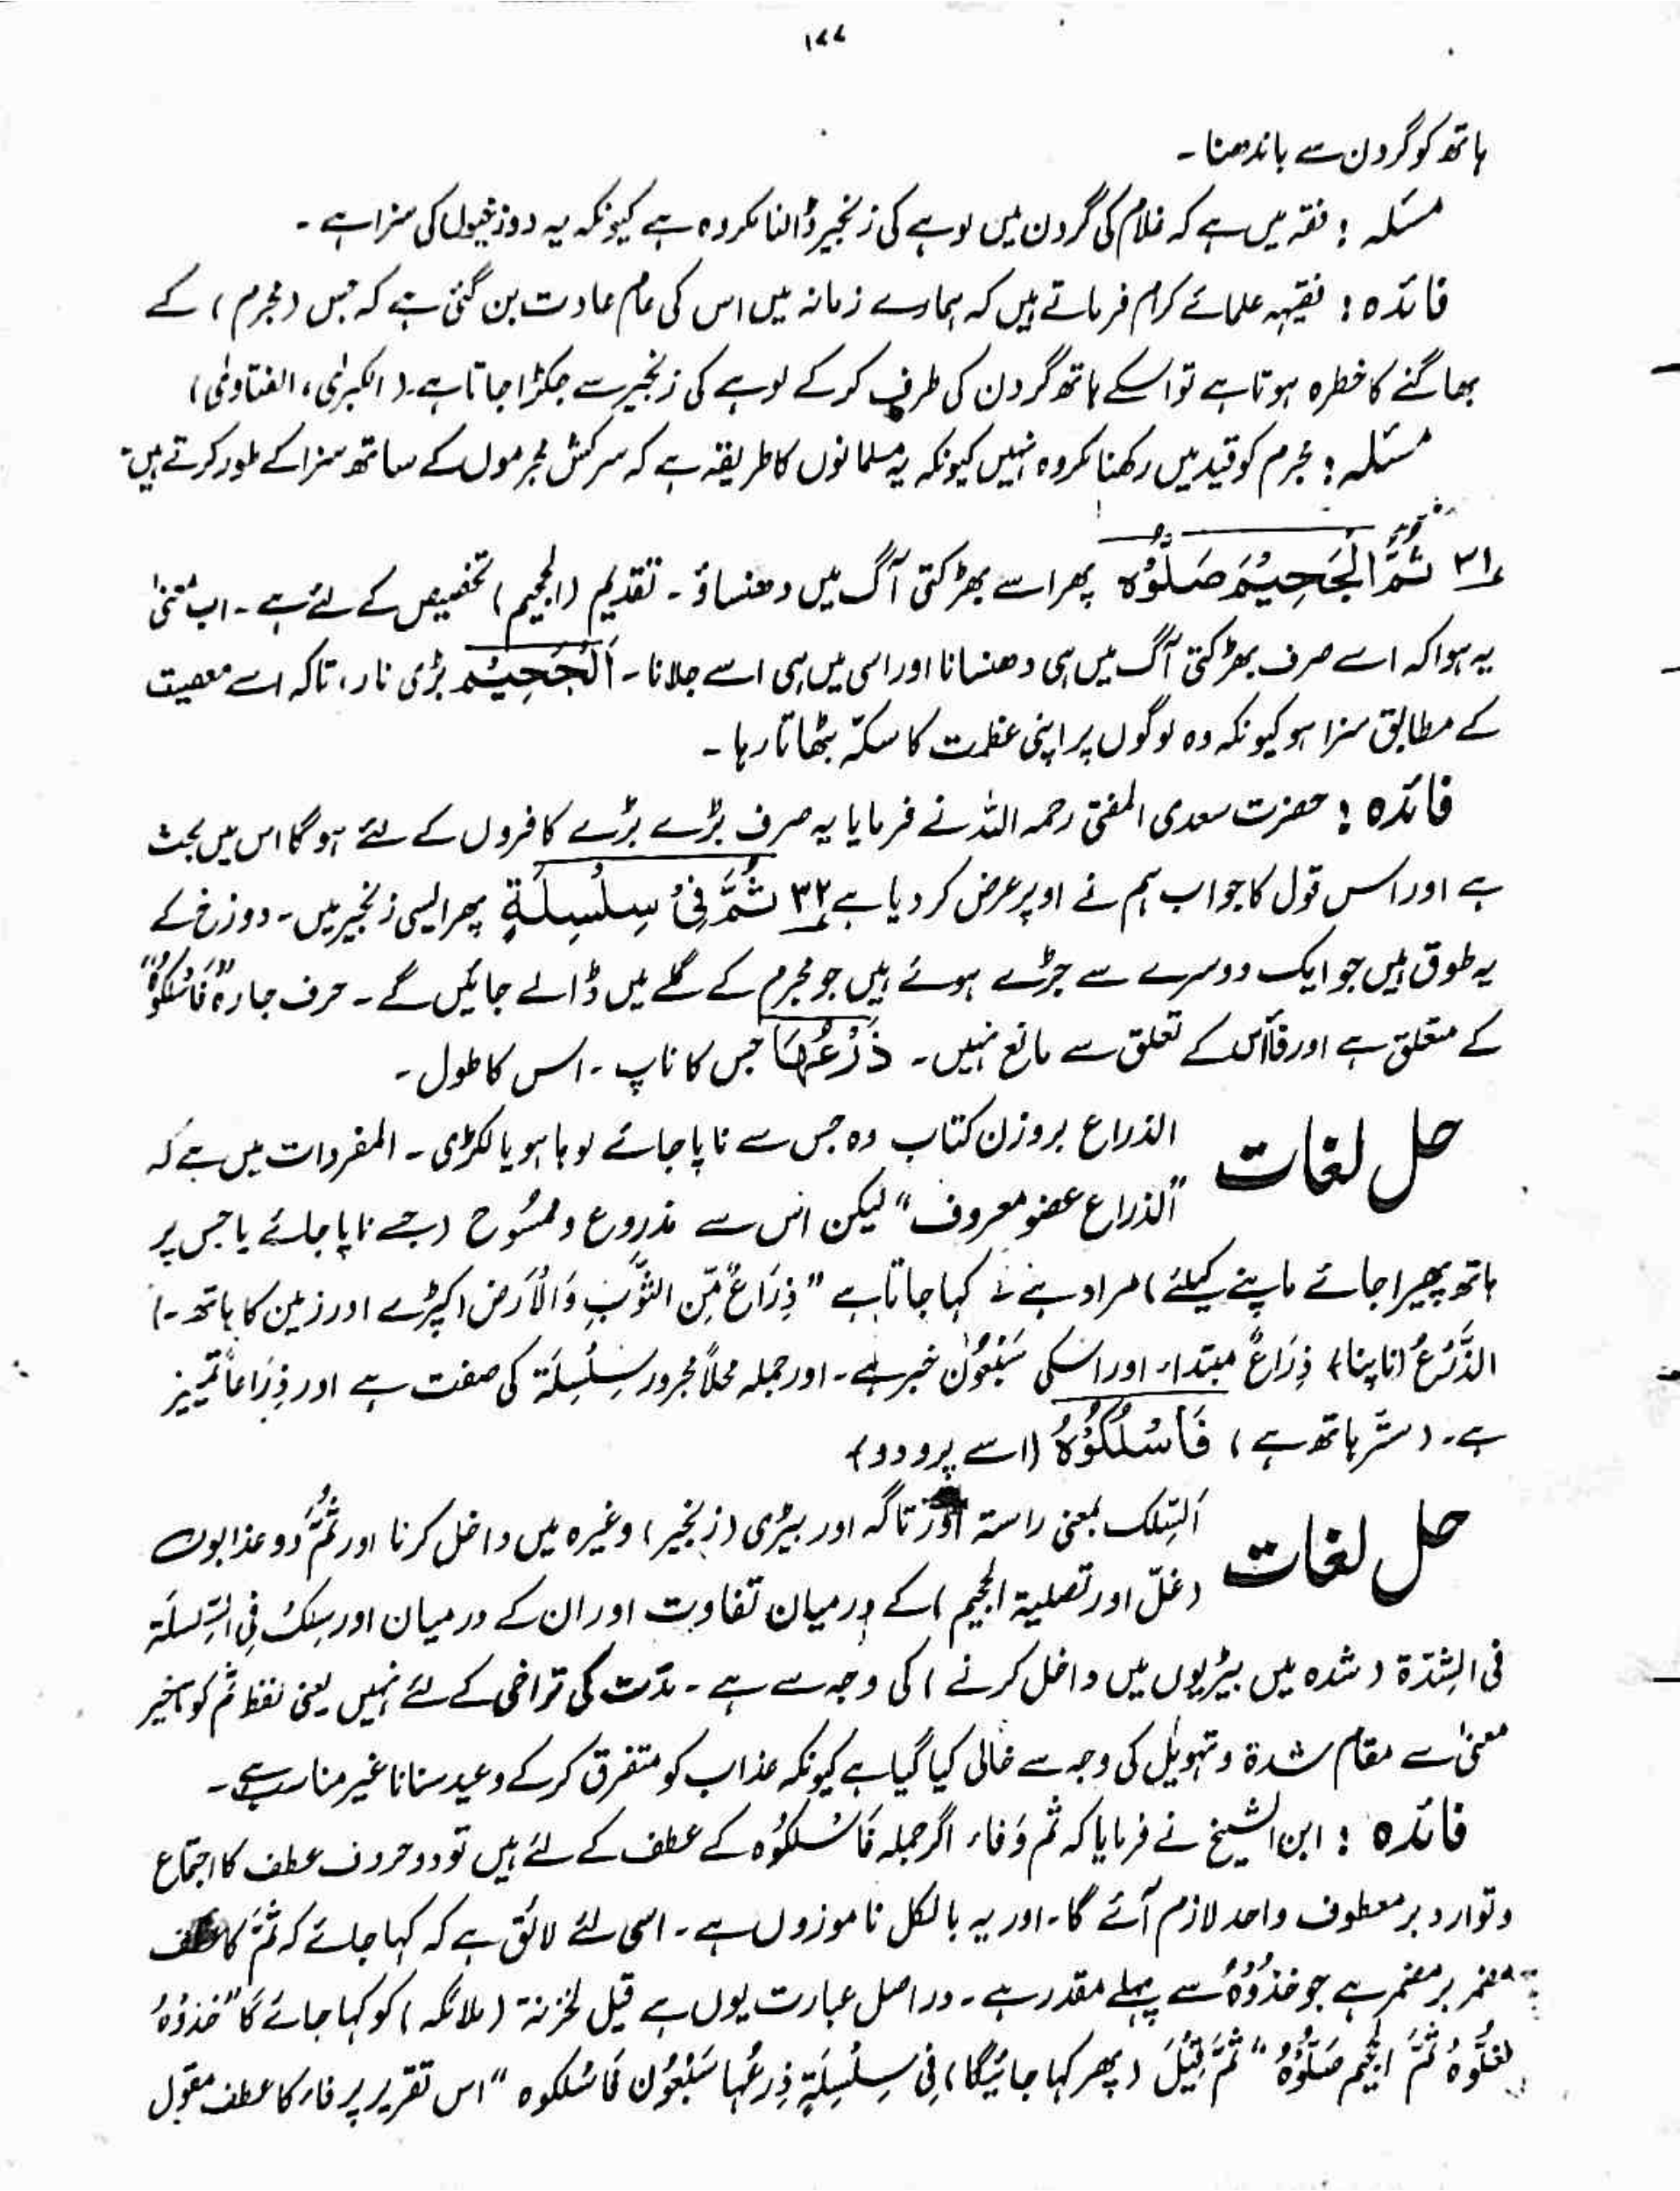 ۱۷۷
ہاتھ کو گردن سے باندھنا ۔
مسئلہ : فقہ میں ہے کہ غلام کی گردن میں لوہے کی زنجیر ڈالنا مکروہ ہے کیونکہ یہ دوزخیوں کی سزا ہے ۔
فائدہ : فقیہہ علمائے کرام فرماتے ہیں کہ ہمارے زمانہ میں اس کی عام عادت بن گئی ہے کہ جس (مجرم) کے
بھاگنے کا خطرہ ہوتا ہے تو اسکے ہاتھ گردن کی طرف کر کے لوہے کی زنجیر سے جکڑا جاتا ہے۔ (الکبریٰ، الفتاویٰ)
مسئلہ : مجرم کو قید میں رکھنا مکروہ نہیں کیونکہ یہ مسلمانوں کا طریقہ ہے کہ سرکش مجرموں کے ساتھ سزا کے طور کرتے ہیں۔
۳۱ ثُمَّ الْجَحِيْمَ صَلُّوْهُ پھر اسے بھڑکتی آگ میں دھنساؤ ۔ تقدیم (الجحیم) تخصیص کے لئے ہے ۔ اب معنیٰ
یہ ہوا کہ اسے صرف بھڑکتی آگ میں ہی دھنسانا اور اسی میں ہی اسے جلانا ۔ اَلْجَحِيْمُ بڑی نار ، تاکہ اسے معصیت
کے مطابق سزا ہو کیونکہ وہ لوگوں پر اپنی عظمت کا سکّہ بٹھاتا رہا ۔
فائدہ : حضرت سعدی المفتی رحمہ اللہ نے فرمایا یہ صرف بڑے بڑے کافروں کے لئے ہوگا اس میں بحث
ہے اور اس قول کا جواب ہم نے اوپر عرض کر دیا ہے ۳۲ ثُمَّ فِیْ سِلْسِلَةٍ پھر ایسی زنجیر میں ۔ دوزخ کے
یہ طوق ہیں جو ایک دوسرے سے جڑے ہوئے ہیں جو مجرم کے گلے میں ڈالے جائیں گے ۔ حرف جارہ "فَاسْلُكُوْهُ"
کے متعلق ہے اور فا اس کے تعلق سے مانع نہیں ۔ ذَرْعُهَا جس کا ناپ ۔ اس کا طول ۔
حل لغات الذراع بروزن کتاب وہ جس سے ناپا جائے لوہا ہو یا لکڑی ۔ المفردات میں ہے کہ
"الذراع عضو معروف" لیکن اس سے مذروع و ممسُوح (جسے ناپا جائے یا جس پر
ہاتھ پھیرا جائے ماپنے کیلئے) مراد ہے کہا جاتا ہے "ذِرَاعٌ مِّن الثَّوْبِ وَالْاَرْض (کپڑے اور زمین کا ہاتھ ۔)
الذَّرْعُ (ناپنا) ذِرَاعٌ مبتداء اور اسکی سَبْعُوْن خبر ہے ۔ اور جملہ محلاً مجرور سِلْسِلَة کی صفت ہے اور ذِرَاعًا تمییز
ہے ۔ (ستّر ہاتھ ہے) فَاسْلُكُوْهُ (اسے پرو دو)
حل لغات اَلسِّلک بمعنی راستہ اور تاگہ اور بیڑی (زنجیر) وغیرہ میں داخل کرنا اور ثُمَّ دو عذابوں
(غلّ اور تصلیۃ الجحیم) کے درمیان تفاوت اور ان کے درمیان اور سلک فی السِّلسلَۃ
فی الشِدّۃ (شدہ میں بیڑیوں میں داخل کرنے) کی وجہ سے ہے ۔ مدّت کی تراخی کے لئے نہیں یعنی لفظ ثم کو تاخیر
معنیٰ سے مقام شدۃ و تہویل کی وجہ سے خالی کیا گیا ہے کیونکہ عذاب کو متفرق کر کے وعید سنانا غیر مناسب ہے ۔
فائدہ : ابن الشیخ نے فرمایا کہ ثم وَ فاء اگر جملہ فَاسْلُكُوْه کے عطف کے لئے ہیں تو دو حروف عطف کا اجتماع
و توارد بر معطوف واحد لازم آئے گا ۔ اور یہ بالکل ناموزوں ہے ۔ اسی لئے لائق ہے کہ کہا جائے کہ ثُمَّ کا عطف
مضمر بر مضمر ہے جو خُذُوْهُ سے پہلے مقدر ہے ۔ در اصل عبارت یوں ہے قیل لخزنۃ (ملائکہ) کو کہا جائے گا "خذوْهُ
فغلُّوْهُ ثُمَّ الجحیم صَلُّوْهُ" ثُمَّ قِيْلَ (پھر کہا جائیگا) فِی سِلْسِلَةٍ ذِرعُها سَبْعُوْن فَاسْلکوه" اس تقریر پر فاء کا عطف مقول